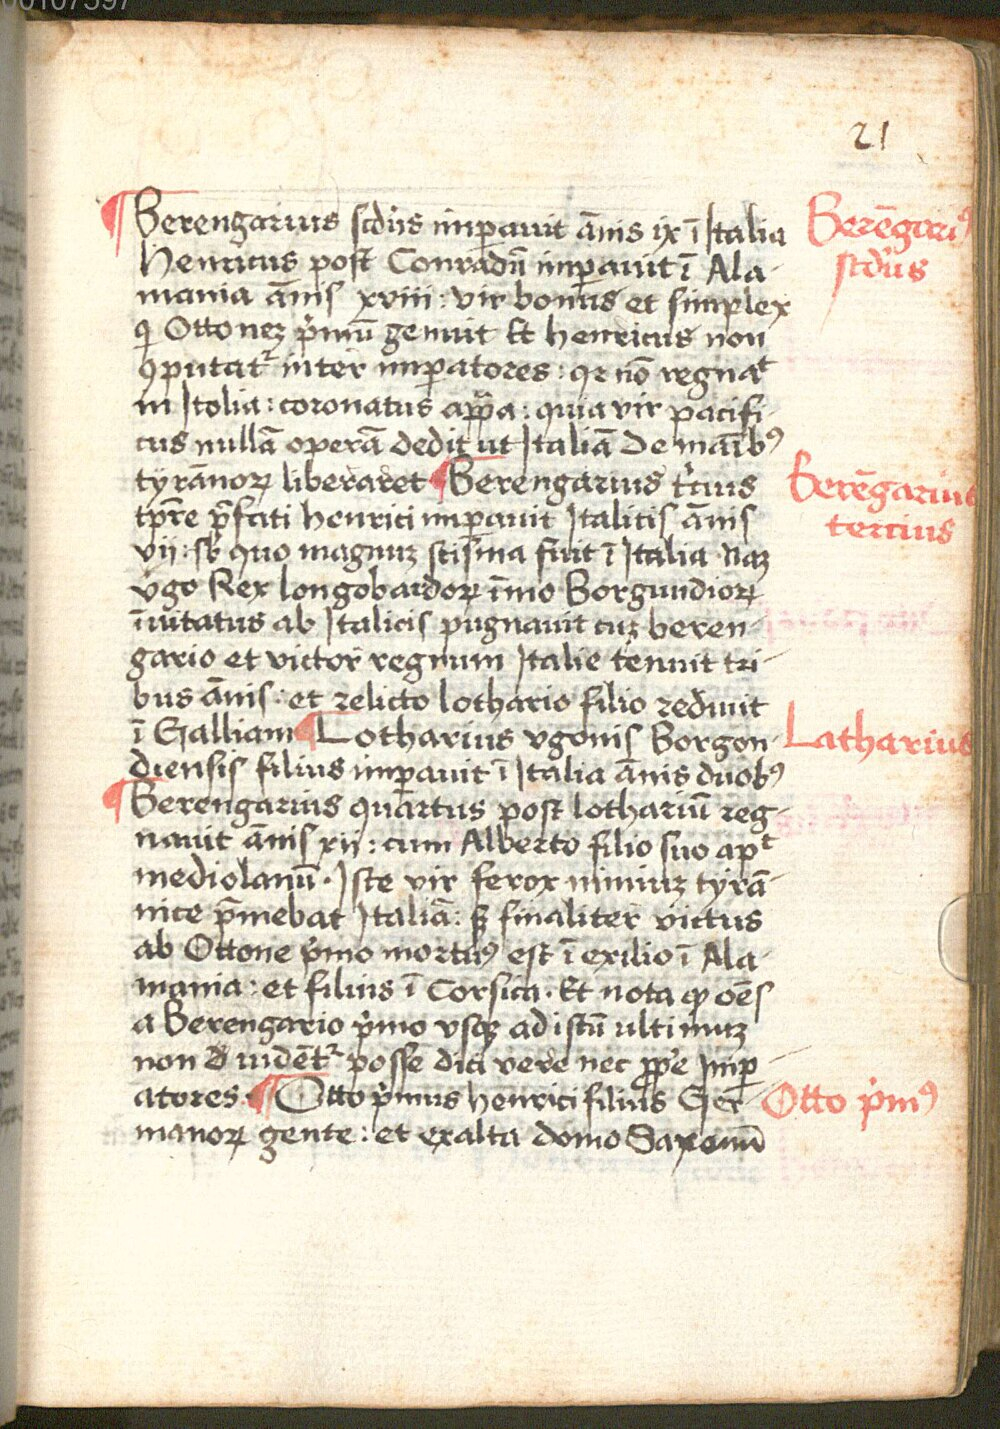 21
¶ Berengarius scd'us imp̱auit ãnis ix ĩ Italia
Henricus post Conradũ imp̱auit ĩ Ala-
mania ãnis xviii : vir bonus et simplex
qi Ottonez p'mũ genuit Et henricus non
ꝯputatr inter imp̱atores : qr nõ regnat
in Itolia : coronatus app̃a : quia vir pacifi-
cus nullã operã dedit ut Italiã De maĩbꝰ
tyrãnoꝝ liberaret ¶ Berengarius t'cius
tp̃re p̃fati henrici imp̱auit Italicis ãnis
vij : sb' quo magnuz scisma fuit ĩ Italia Naz
vgo Rex longobardoꝝ ĩmo Borgundioꝝ
ĩuitatus ab Italicis pugnauit cuz beren-
gario et victor regnum Italie tenuit tri-
bus ãnis : et relicto lothario filio rediuit
ĩ Galliam ¶ Lotharius vgonis Borgon-
diensis filius imp̱auit ĩ Italia ãnis duobꝰ
¶ Berengarius quartus post lothariũ reg-
nauit ãnis xij : cum Alberto filio suo apt
mediolanũ . Iste vir ferox nimiuz tyrã-
nice p̃mebat Italiã : sꝫ finaliter victus
ab Ottone p'mo mortuꝰ est ĩ exilio ĩ Ala-
mania : et filius ĩ Corsica . Et nota ꝙ oẽs
a Berengario p'mo vsqꝫ ad istũ ultimuz
non uidẽtr posse dici vere nec pp̱e Imp̱-
atores . ¶ Otto p'mus henrici filius Ger-
manoꝝ gente : et exalta domo Saxonũ
Berẽgariꝰ
scd'us
Berẽgarius
tercius
Latharius
Otto p'mꝰ